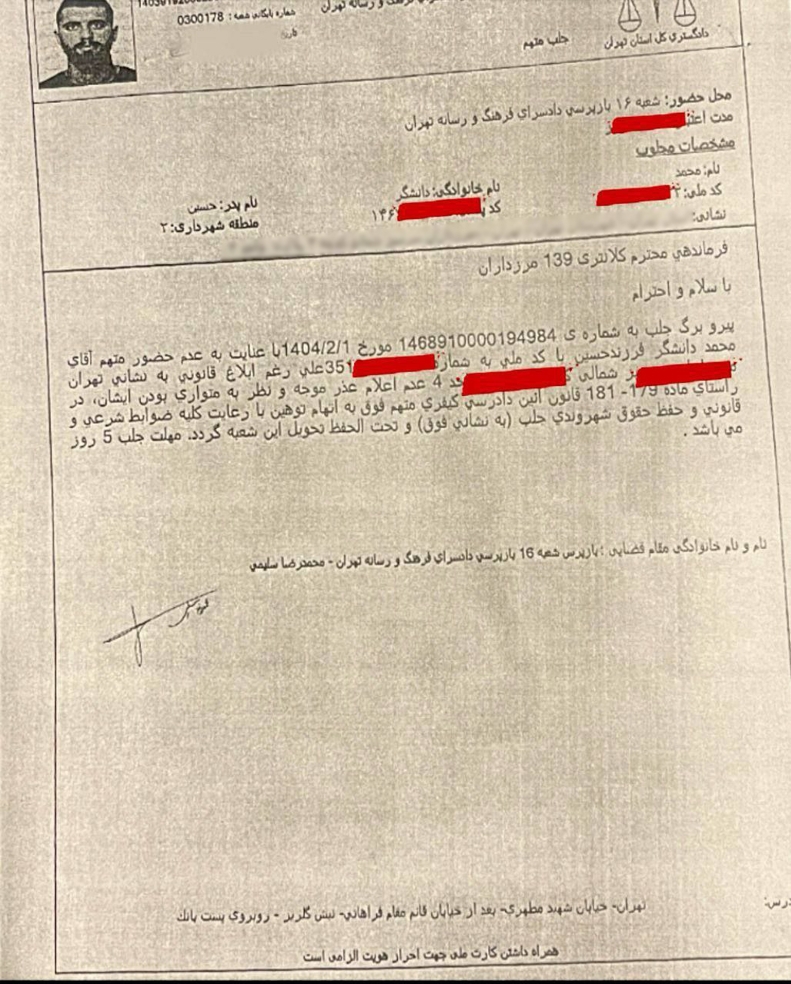 شماره بایگانی شعبه : 0300178
تاریخ
دادگستری کل استان تهران
جلب متهم
محل حضور: شعبه ۱۶ بازپرسي دادسراي فرهنگ و رسانه تهران
مدت
مشخصات مجلوب
نام: محمد نام خانوادگی: دانشگر نام پدر: حسین
کد ملی: کد ۱۴۶ منطقه شهرداری: ۲
نشانی:
فرماندهي محترم كلانتری 139 مرزداران
با سلام و احترام
پیرو برگ جلب به شماره ی 1468910000194984 مورخ 1404/2/1با عنایت به عدم حضور متهم آقاي
محمد دانشگر فرزندحسین با کد ملي به شماره 351علي رغم ابلاغ قانوني به نشاني تهران
شمالي 4 عدم اعلام عذر موجه و نظر به متواري بودن ایشان، در
راستاي ماده 179- 181 قانون آئین دادرسي کیفري متهم فوق به اتهام توهین با رعایت کلیه ضوابط شرعي و
قانوني و حفظ حقوق شهروندي جلب (به نشاني فوق) و تحت الحفظ تحویل این شعبه گردد. مهلت جلب 5 روز
مي باشد .
نام و نام خانوادگی مقام قضایی : بازپرس شعبه 16 بازپرسي دادسراي فرهنگ و رسانه تهران - محمدرضا سلیمي
تهران- خیابان شهید مطهری- بعد از خیابان قائم مقام فراهانی- نبش گلریز - روبروی پست بانک
همراه داشتن کارت ملی جهت احراز هویت الزامی است